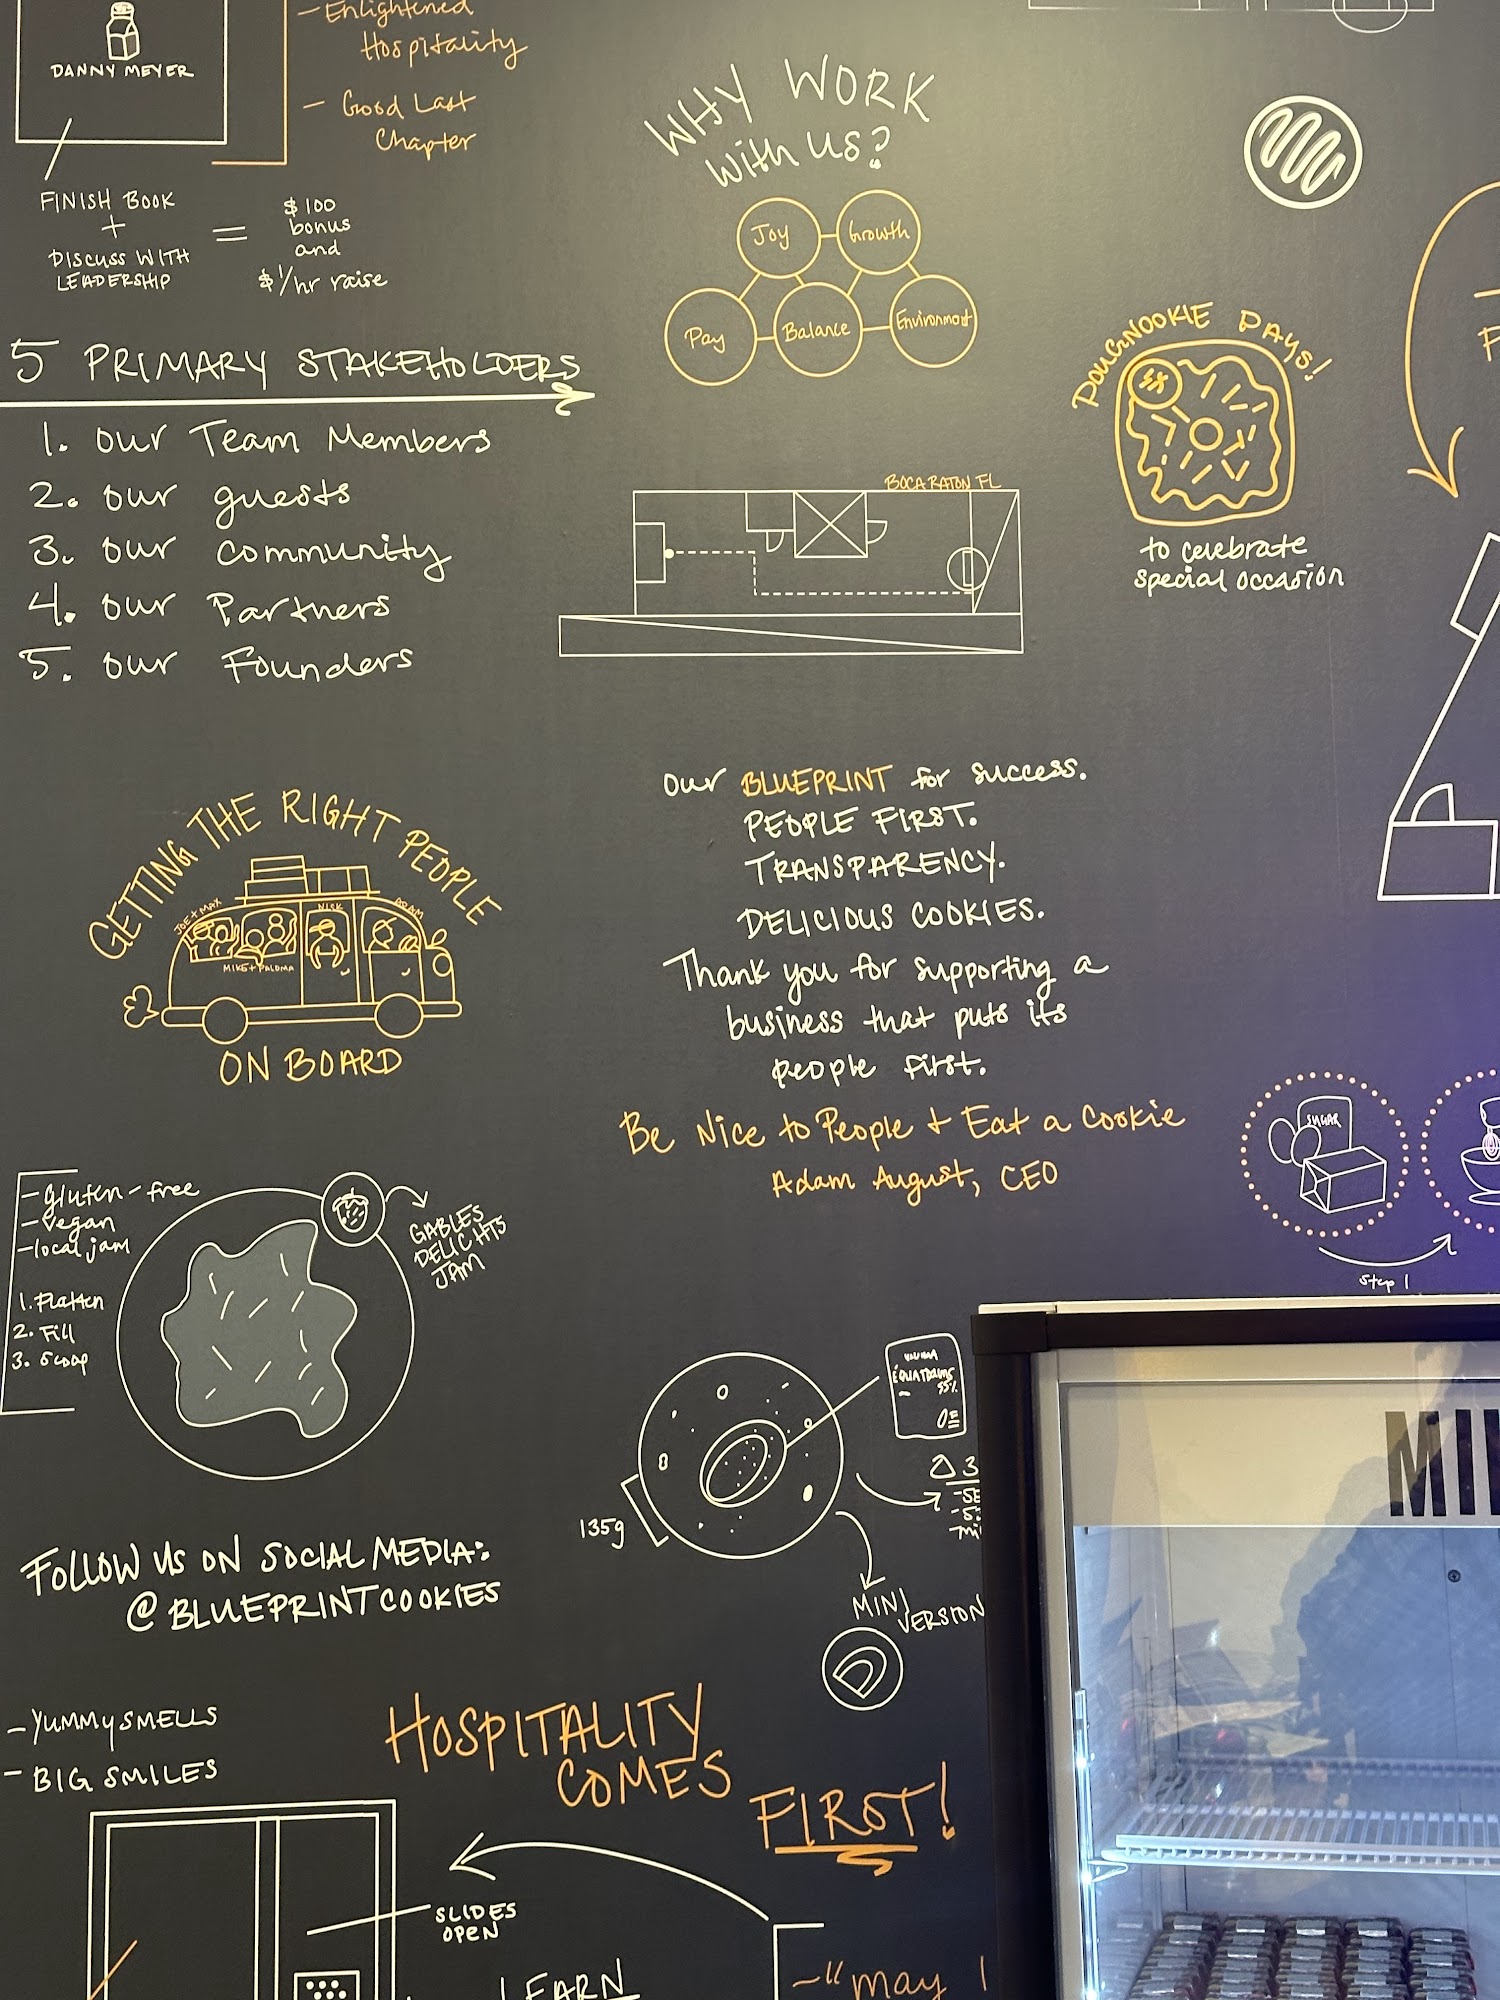 DANNY MEYER
- Enlightened
Hospitality
- Good Last
Chapter
FINISH BOOK
+
DISCUSS WITH
LEADERSHIP
=
$100
bonus
and
$1/hr raise
WHY WORK
with us?
Joy
Growth
Pay
Balance
Environment
5 PRIMARY STAKEHOLDERS
1. our Team Members
2. our guests
3. our community
4. our Partners
5. our Founders
BOCA RATON FL
DOUGNOOKIE DAYS!
to celebrate
special occasion
GETTING THE RIGHT PEOPLE
JOE + MAX
NICK
ADAM
MIKE + PALOMA
ON BOARD
our BLUEPRINT for success.
PEOPLE FIRST.
TRANSPARENCY.
DELICIOUS COOKIES.
Thank you for supporting a
business that puts its
people first.
Be Nice to People + Eat a Cookie
Adam August, CEO
SUGAR
Step 1
- gluten-free
- vegan
- local jam
1. Flatten
2. Fill
3. Scoop
GABLES
DELIGHTS
JAM
135g
ÉQUATORIALE
55%
MINI
VERSION
FOLLOW US ON SOCIAL MEDIA:
@BLUEPRINTCOOKIES
- YUMMY SMELLS
- BIG SMILES
HOSPITALITY
COMES
FIRST!
SLIDES
OPEN
LEARN
- "may I
MI